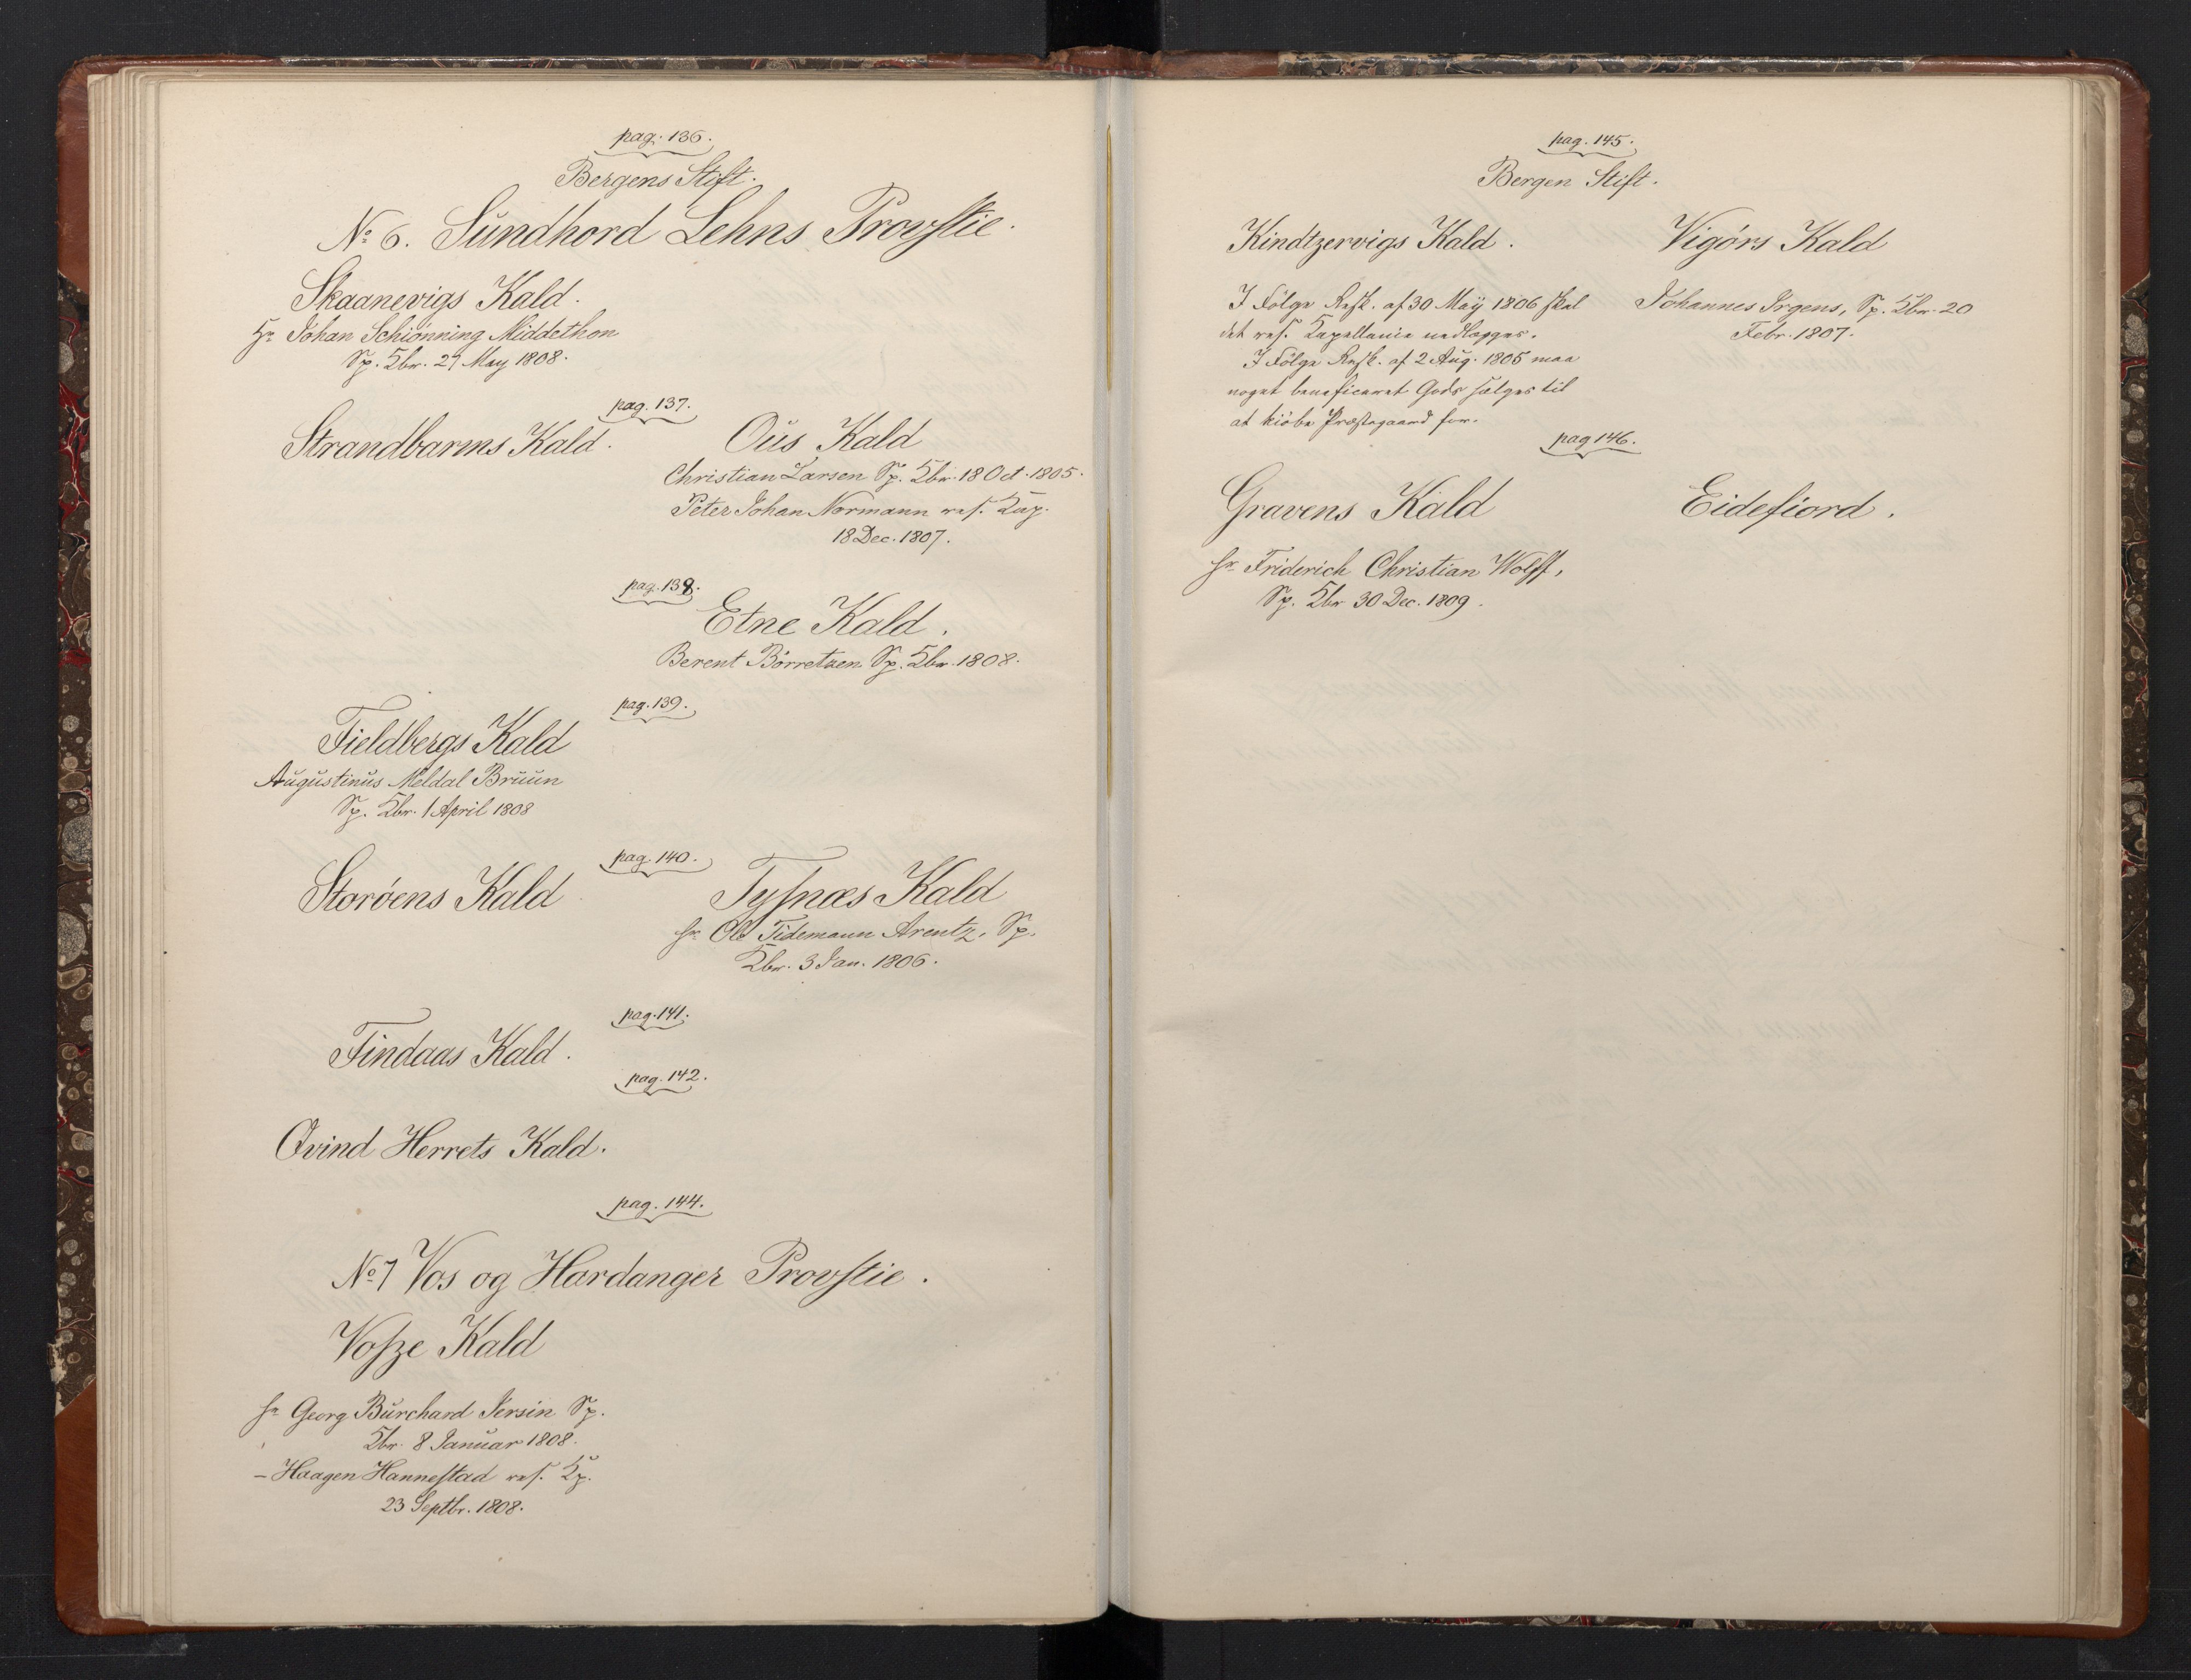 pag. 136.
Bergens Stift.
No 6. Sundhord Lehns Provstie.
Skaanevigs Kald.
Hr Johan Schiönning Middethon
Sp. Kbr. 27 May 1808.
pag. 137.
Strandbarms Kald.
Ous Kald
Christian Larsen Sp. Kbr. 18 Oct. 1805.
Peter Johan Normann res. Kap.
18 Dec. 1807.
pag. 138.
Etne Kald.
Berent Börretzen Sp. Kbr. 1808.
pag. 139.
Fieldbergs Kald
Augustinus Meldal Bruun
Sp. Kbr. 1 April 1808
pag. 140.
Storöens Kald
Tysnæs Kald
Hr. Ole Tidemann Arentz, Sp.
Kbr. 3 Jan. 1806.
pag. 141.
Findaas Kald.
pag. 142.
Qvind Herrets Kald.
pag. 144.
No 7 Vos og Hardanger Provstie.
Vosze Kald
Hr Georg Burchard Jersin Sp.
Kbr. 8 Januar 1808.
– Haagen Hannestad res. Kp.
23 Septbr. 1808.
pag. 145.
Bergen Stift.
Kindtzervigs Kald.
I Følge Resk. af 30 Maÿ 1806 skal
det res. Kapellanie nedlægges.
I Følge Resk. af 2 Aug. 1805 maa
noget beneficeret Gods sælges til
at kiöbe Præstegaard for.
Vigörs Kald
Johannes Irgens, Sp. Kbr. 20
Febr. 1807.
pag 146.
Gravens Kald
Hr Friderich Christian Wolff,
Sp. Kbr 30 Dec. 1809.
Eidefiord.